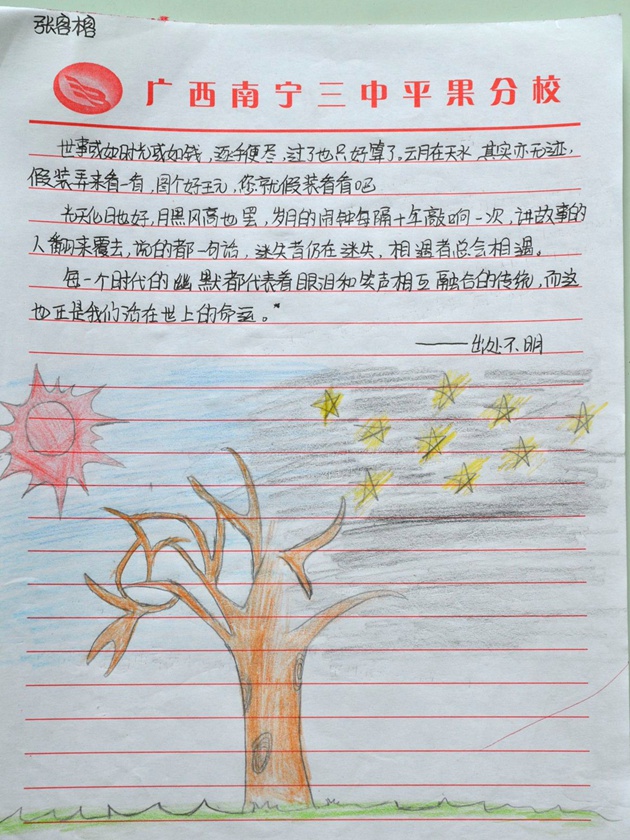 张容榕
广西南宁三中平果分校
世事或如时光或如钱，逐手便尽，过了也只好算了。云月在天水，其实亦无迹，
假装弄来看一看，图个好玩，您就假装看看吧
光天化日也好，月黑风高也罢，岁月的闹钟每隔十年敲响一次，讲故事的
人翻来覆去，说的都一句话，迷失者仍在迷失，相遇者总会相遇。
每一个时代的幽默都代表着眼泪和笑声相互融合的传统，而这
也正是我们活在世上的命运。"
——出处不明